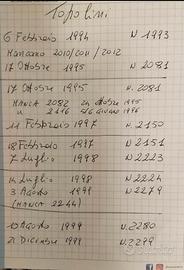 Topolini
6 Febbraio 1994 N 1993
Mancano 2010/2011/2012
17 Ottobre 1995 N 2081
17 Ottobre 1995 N. 2081
MANCA 2082 24 Ottobre 1995
" 2116 del 6 Giugno 1996
11 Febbraio 1997 N° 2150
18 Febbraio 1997 N° 2151
7 Luglio 1998 N° 2223
14 Luglio 1998 N° 2224
3 Agosto 1999 N° 2279
(MANCA 2244)
10 Agosto 1999 N° 2280
21 Dicembre 1999 N° 2299